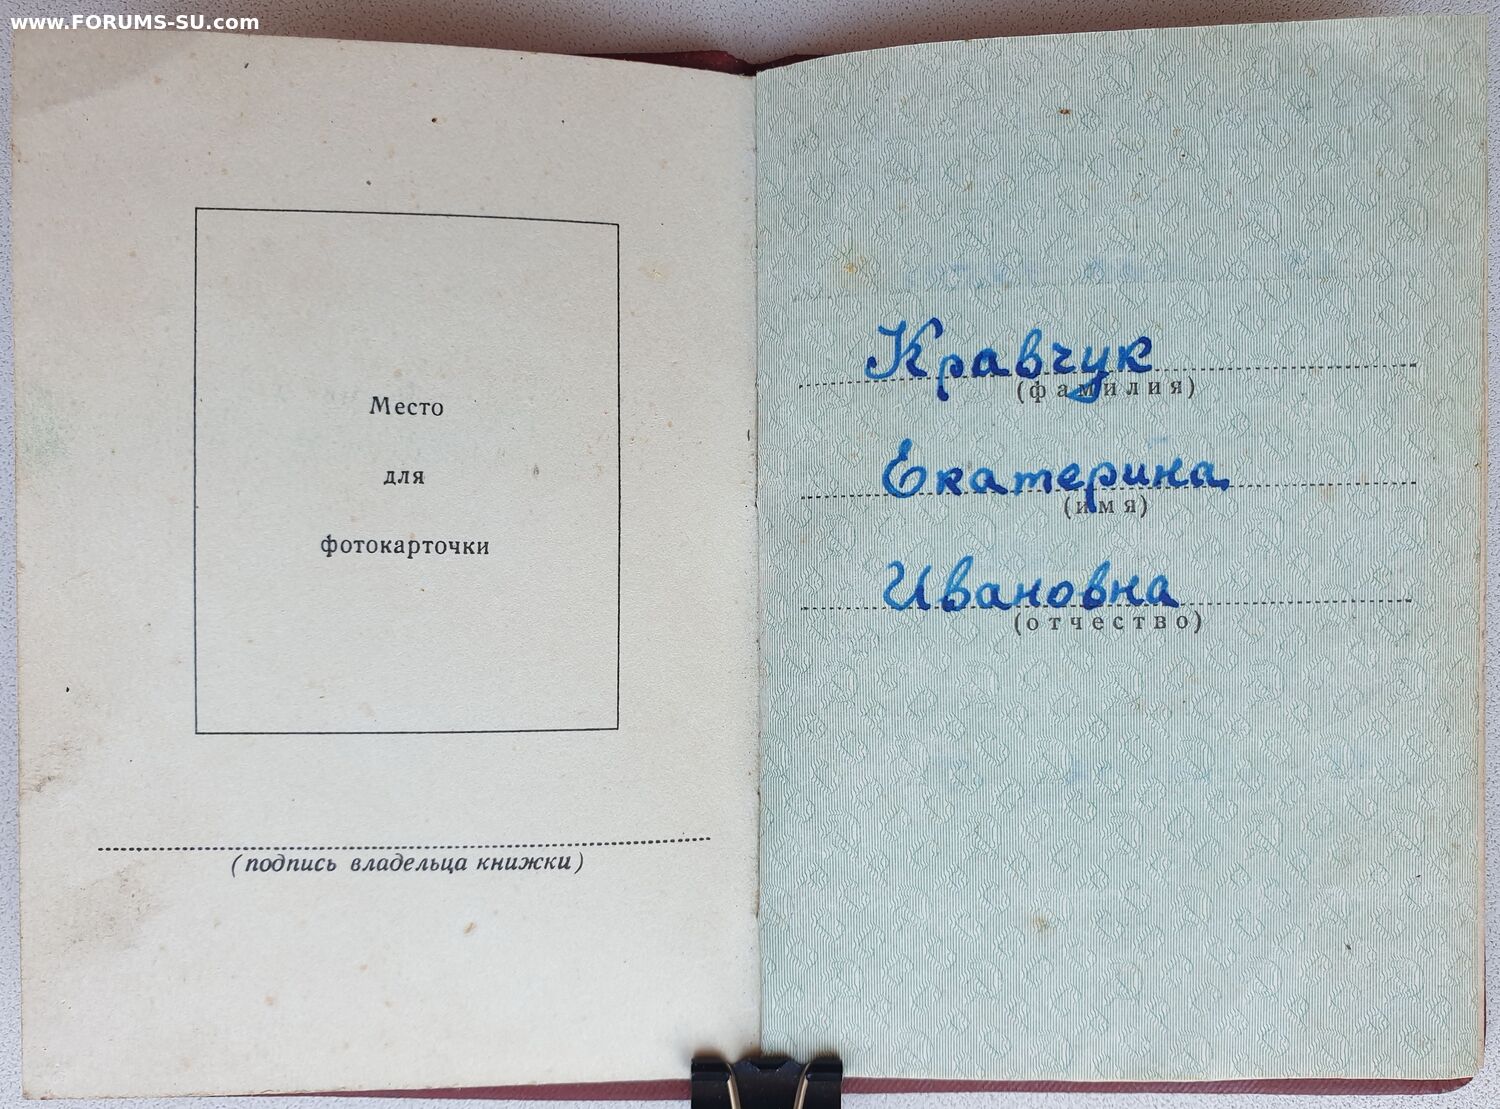 www.FORUMS-SU.com
Место
для
фотокарточки
(подпись владельца книжки)
Кравчук
(фамилия)
Екатерина
(имя)
Ивановна
(отчество)